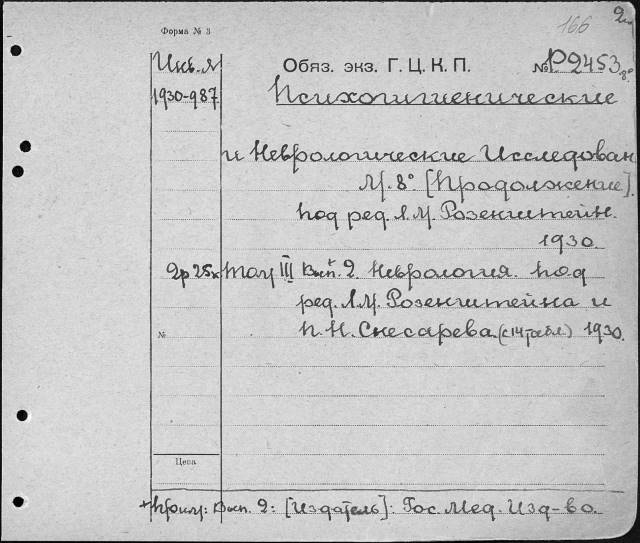 166
Форма № 3
Инв. №
Обяз. экз. Г. Ц. К. П. № P2453
8°
1930-987
Психогигиенические
и Неврологические Исследован
М. 8° [Продолжение].
под ред. Л.М. Розенштейн.
1930.
2р 25к Том III Вып. 2. Неврология. под
ред. Л.М. Розенштейна и
П. Н. Снесарева. (с 14 табл.) 1930.
№
Цена
+ Прим: Вып. 2: [Издатель]: Гос. Мед. Изд-во.